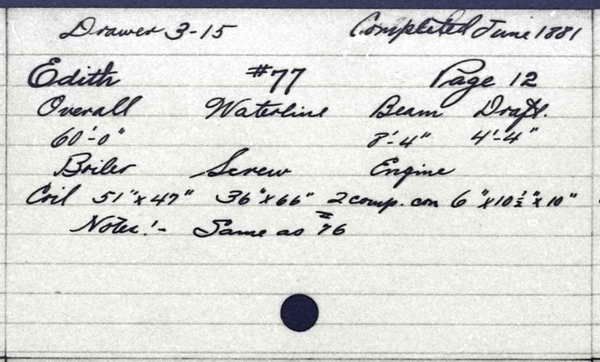 Drawer 3-15 Completed June 1881
Edith #77 Page 12
Overall Waterline Beam Draft.
60'-0" 8'-4" 4'-4"
Boiler Screw Engine
Coil 51"x47" 36"x66" 2 comp. con 6"x10½"x10"
Notes:- Same as #76